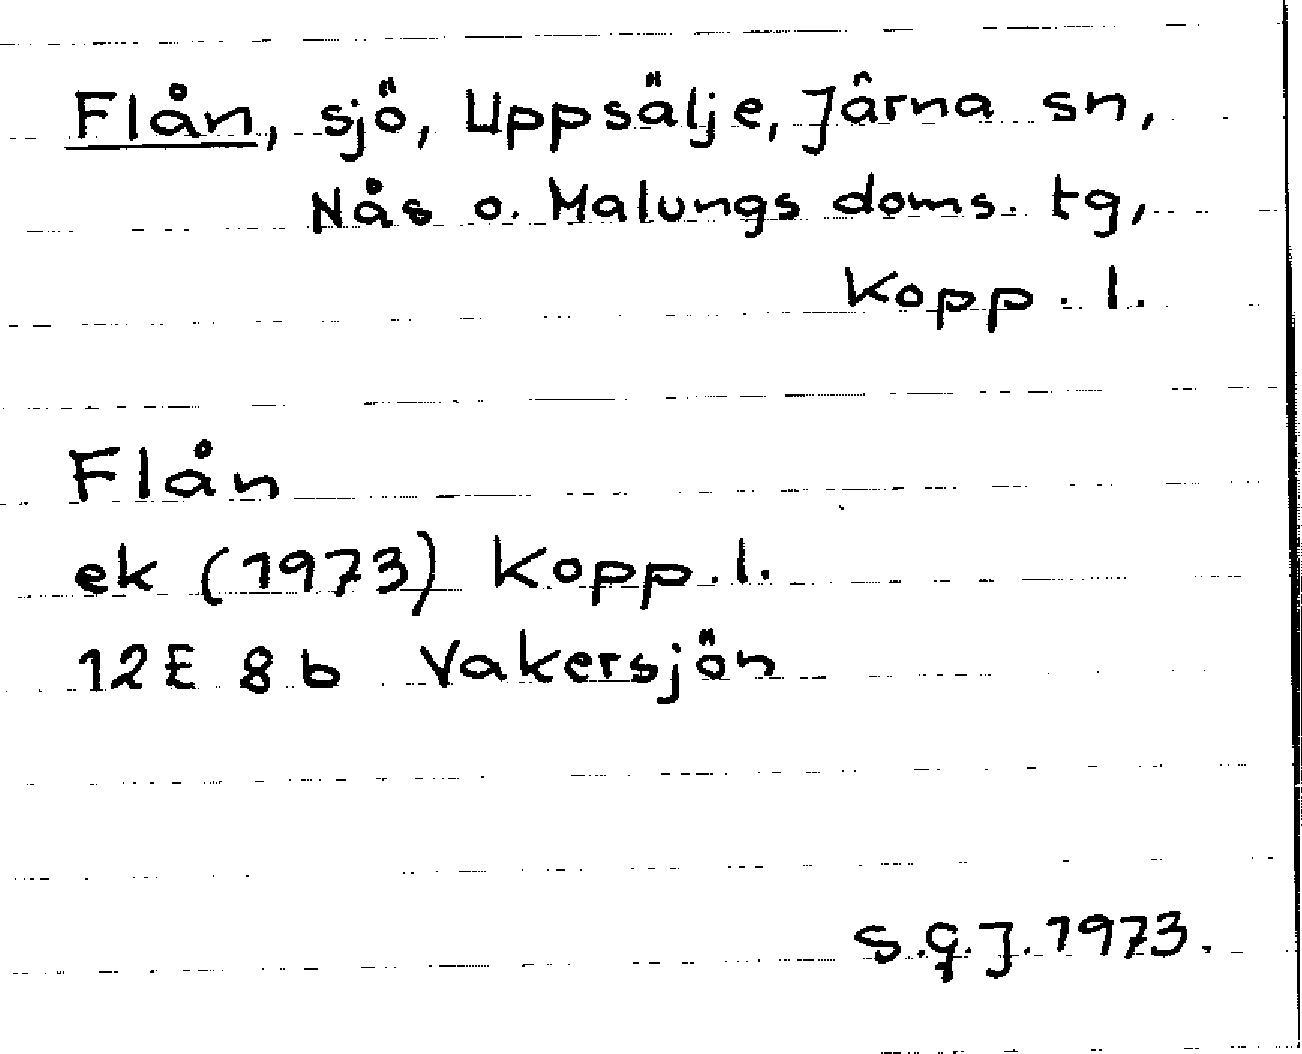 Flån, sjö, Uppsälje, Järna sn,
Nås o. Malungs doms. tg,
Kopp. l.
Flån
ek (1973) Kopp. l.
12E 8b Vakersjön
S.G.J. 1973.